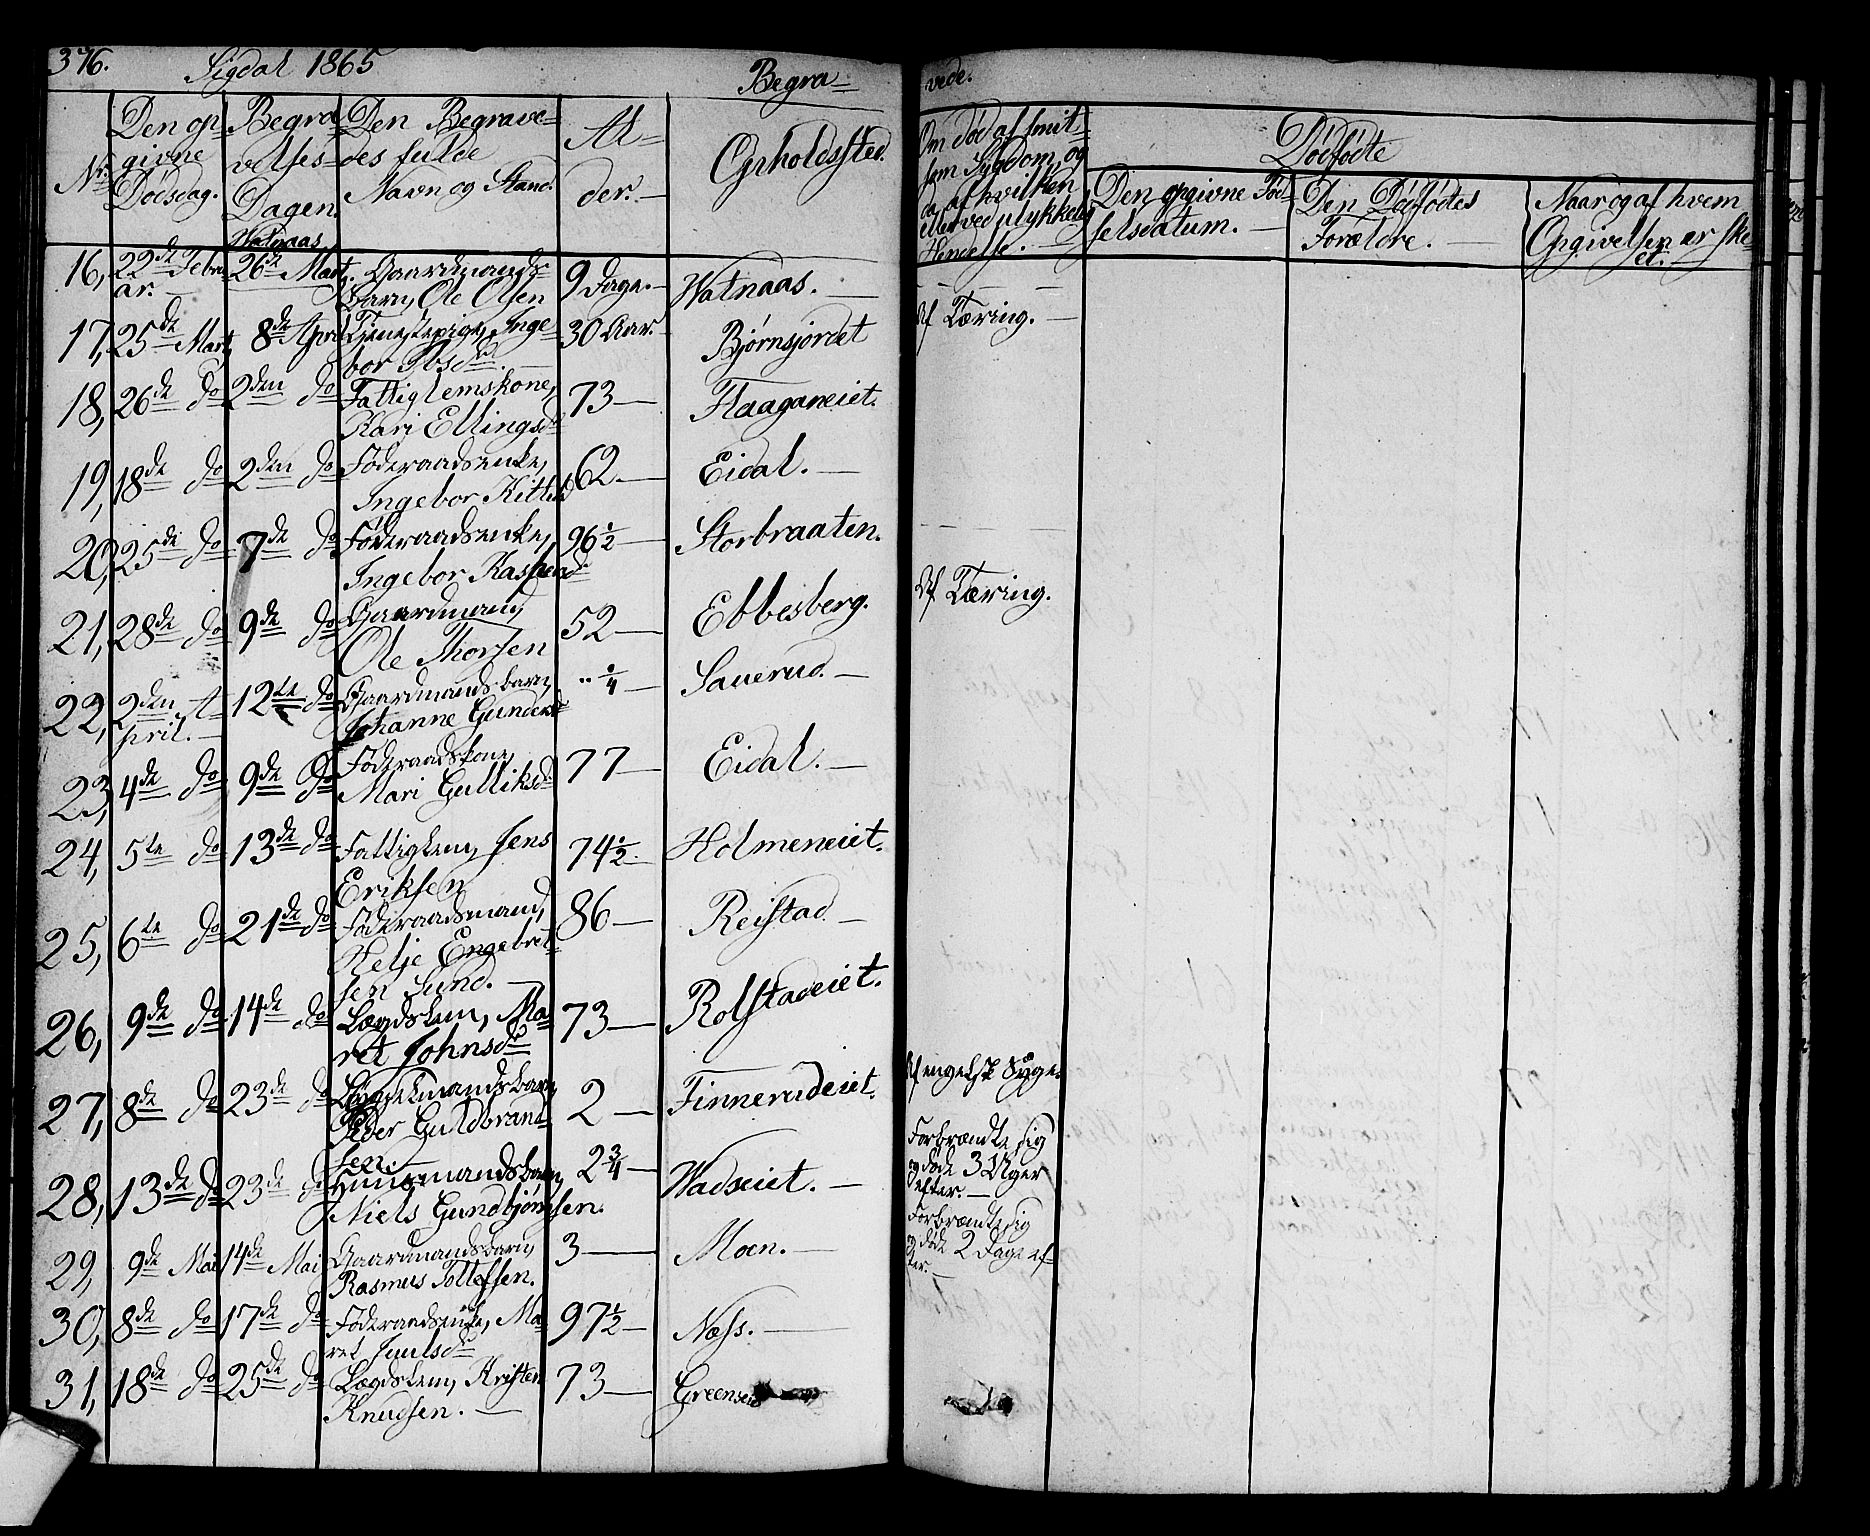 376. Sigdal 1865 Begra= vede.
Nr. Den op= givne Dødsdag. Begra= velses= Dagen. Den Begrave= des fulde Navn og Stand. Al= der. Opholdssted. Om død af smit= som Sygdom, og da af hvilken eller ved ulykkelig Hendelse. Dødfødte
Den opgivne Fød= selsdatum. Den Dødfødtes Forældre. Naar og af hvem Opgivelsen er ske= et.
Watnaas
16, 22de Febru ar. 26de Mart, Gaardmands= barn, Ole Olsen 9 Dage. Watnaas.
17, 25de Mart, 8de April Tjenestepige, Inge bor Ibsdr. 30 Aar. Bjørnsjordet Af Tæring.
18, 26de do 2den do Fattiglemskone, Kari Ellingsdr 73 Flaaganeiet.
19, 18de do 2den do Føderaadsenke, Ingebor Kittilsd 62 Eidal.
20, 25de do 7de do Føderaadsenke, Ingebor Kaspersdr 96 1/2 Storbraaten.
21, 28de do 9de do Gaardmand, Ole Thorsen 52 Ebbesberg. Af Tæring.
22, 2den A= pril. 12te do Gaardmandsbarn, Johanne Gundersd " 1/4 Sauerud.
23, 4de do 9de do Føderaadskone, Mari Gulliksdr 77 Eidal.
24, 5te do 13de do Fattiglem, Jens Eriksen 74 1/2. Holmeneiet.
25, 6te do 21de do Føderaadsmand, Helje Engebret= sen Lund. 86 Reistad
26, 9de do 14de do Lægdslem, Ma= ret Johnsdr 73 Rolstadeiet.
27, 8de do 23de do barn, Peder Guldbrand= sen. 2 Finnerudeiet. Af engelsk Syge.
28, 13de do 23de do Huusmandsbarn, Niels Gundbjørnsen. 2 3/4 Wadseiet. Forbrændte sig og døde 3 Uger efter.
29, 9de Mai 14de Mai Gaardmandsbarn, Rasmus Tollefsen. 3 Moen. Forbrændte sig og døde 2 Dage ef= ter.
30, 8de do 17de do Føderaadsenke, Ma= ret Juulsdr 97 1/2 Næss.
31, 18de do 25de do Lægdslem, Kristen Knudsen. 73